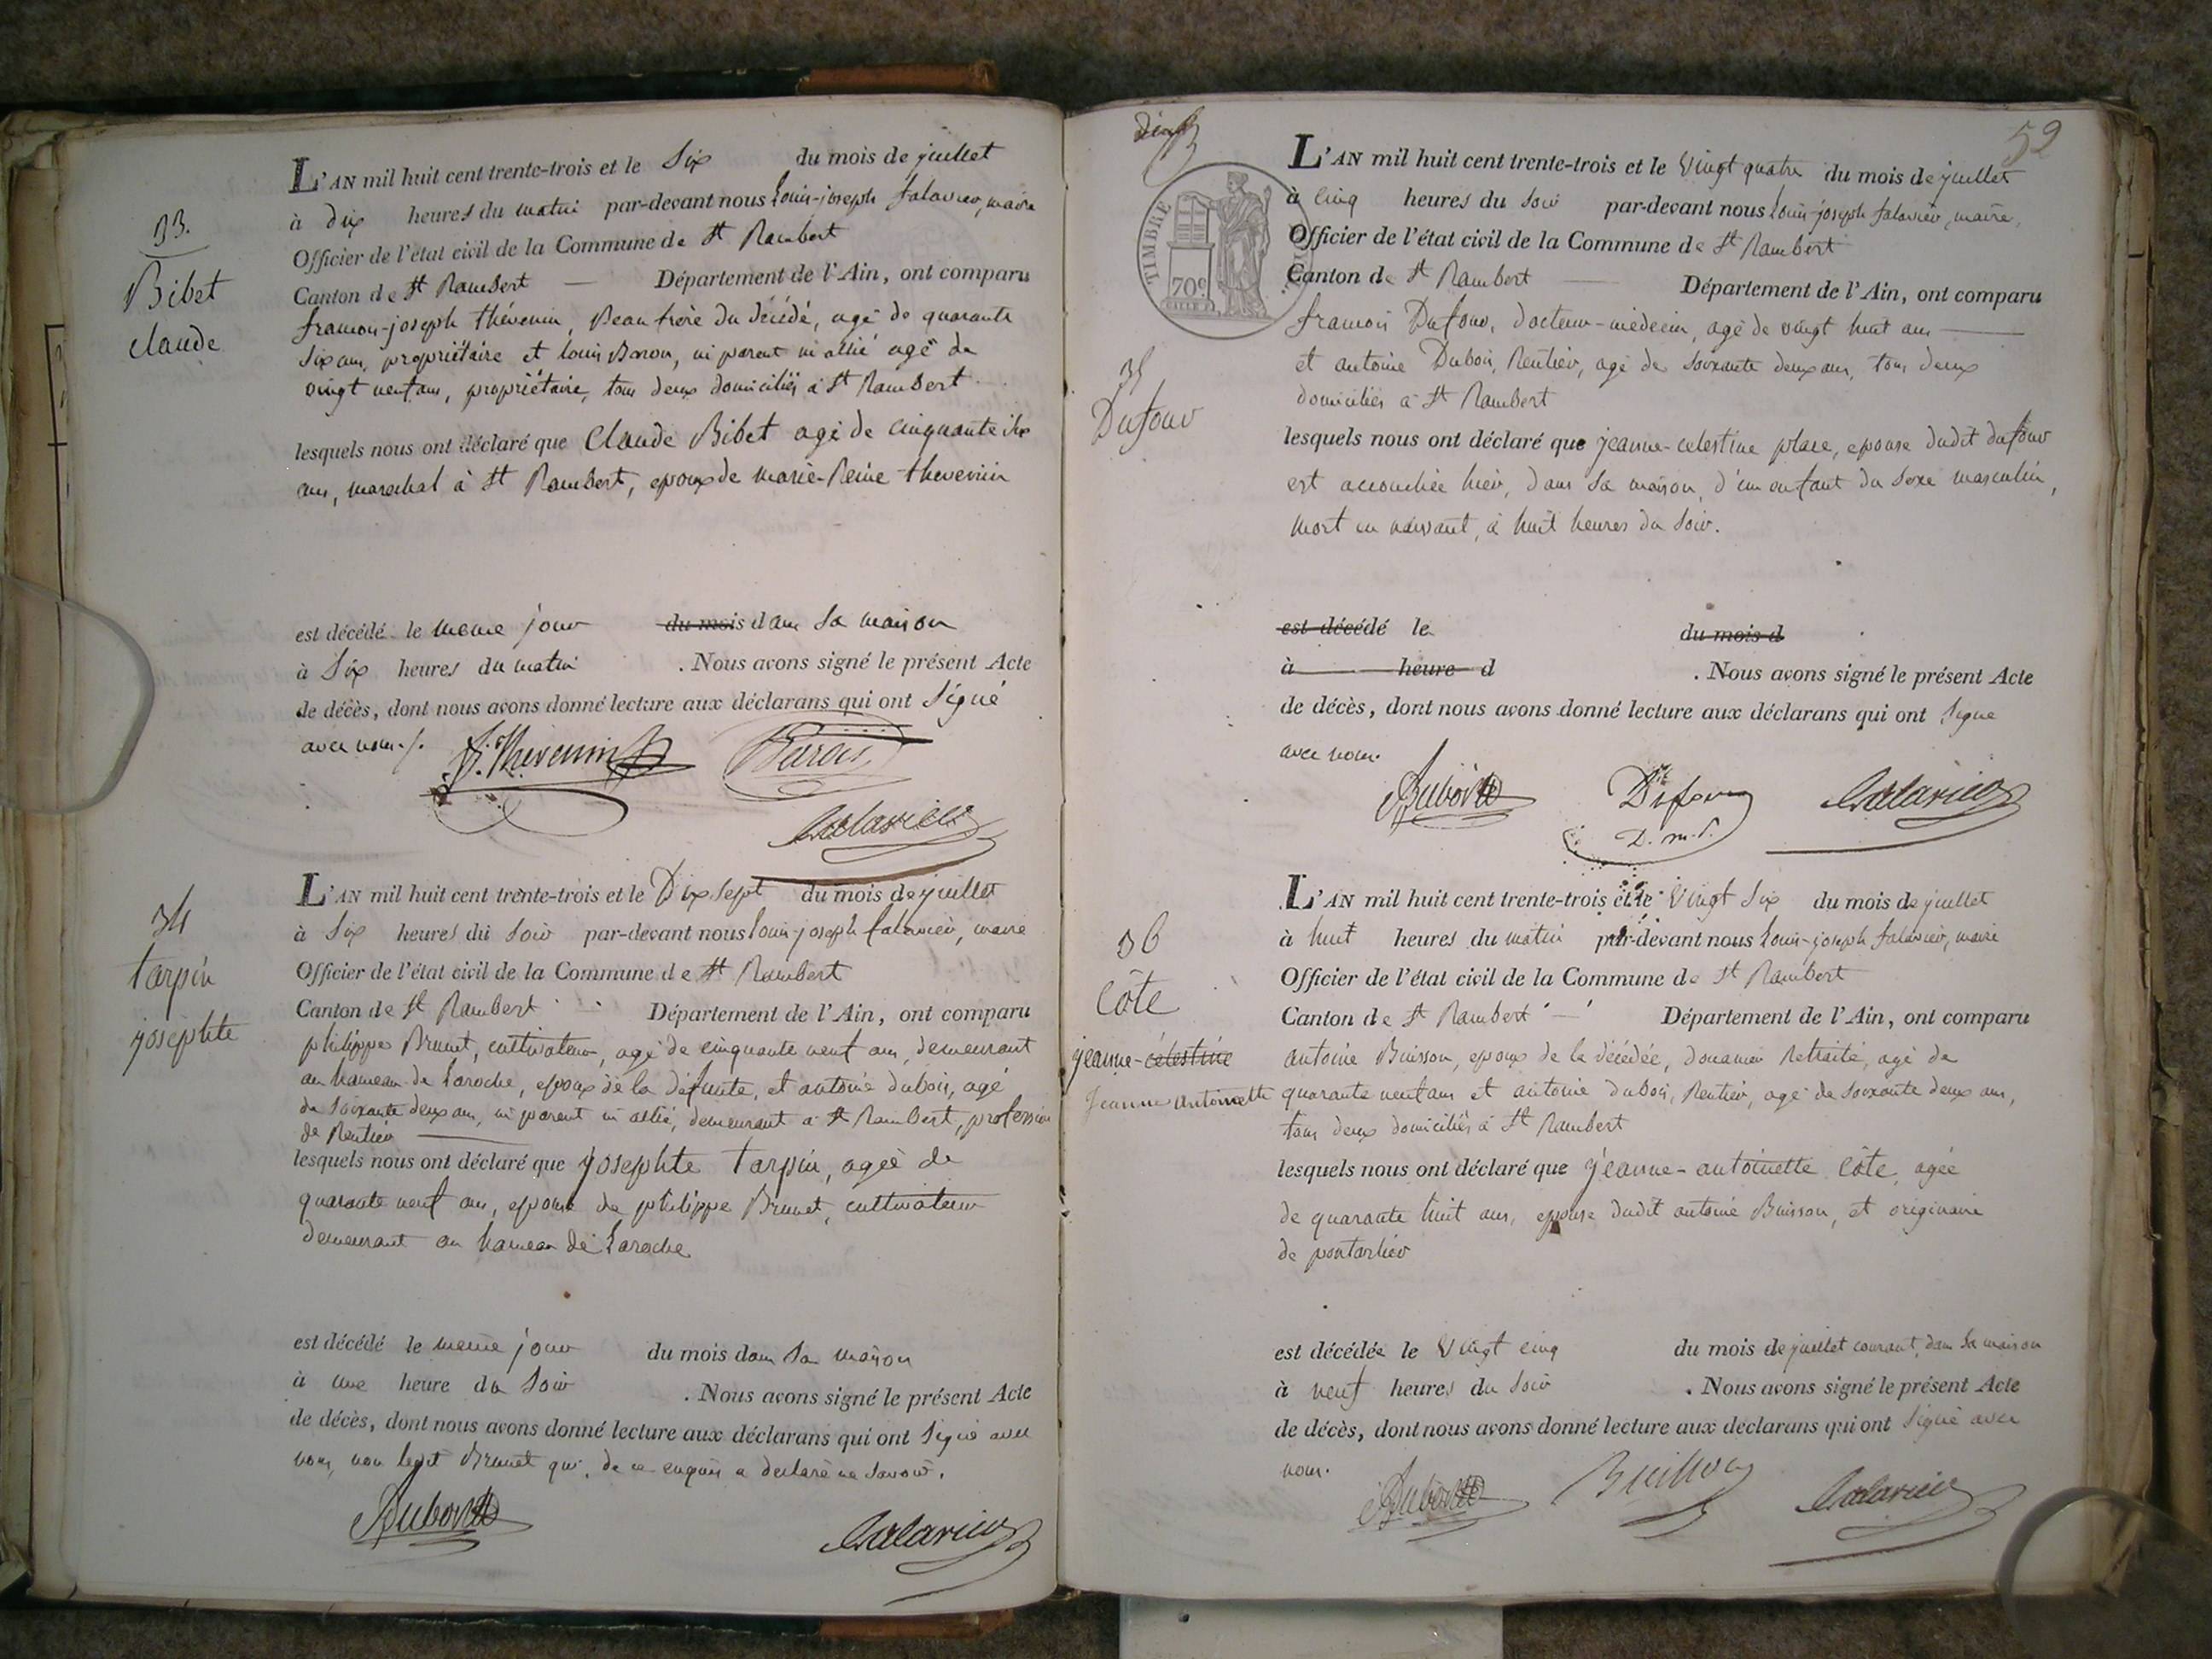 33.
Bibet
claude
L'AN mil huit cent trente-trois et le Six du mois de juillet
à dix heures du matin par-devant nous Louis-joseph falavier, maire
Officier de l'état civil de la Commune de St Rambert
Canton de St Rambert — Département de l'Ain, ont comparu
francois-joseph thévenin, Beau frère du décédé, agé de quarante
six ans, propriétaire et louis, ni parent ni allié agé de
vingt neuf ans, propriétaire, tous deux domiciliés à St Rambert
lesquels nous ont déclaré que Claude Bibet agé de cinquante six
ans, marechal à St Rambert, epoux de marie-Reine thevenin
est décédé le meme jour du mois dans sa maison
à Six heures du matin . Nous avons signé le présent Acte
de décès, dont nous avons donné lecture aux déclarans qui ont signé
avec nous.
J. Thevenin
34
tarpin
josephte
L'AN mil huit cent trente-trois et le Dix sept du mois de juillet
à Six heures du soir par-devant nous louis-joseph falavier, maire
Officier de l'état civil de la Commune de St Rambert
Canton de St Rambert Département de l'Ain, ont comparu
philippe Brunet, cultivateur, agé de cinquante neuf ans, demeurant
au hameau de Laroche, epoux de la défunte, et antoine dubois, agé
de soixante deux ans, ni parent ni allié, demeurant à St Rambert, profession
de Rentier
lesquels nous ont déclaré que josephte tarpin, agée de
quarante neuf ans, epouse de philippe Brunet, cultivateur
demeurant au hameau de Laroche
est décédé le meme jour du mois dans sa maison
à une heure du soir . Nous avons signé le présent Acte
de décès, dont nous avons donné lecture aux déclarans qui ont signé avec
nous, non ledit Brunet qui, de ce enquis a declaré ne savoir.
Dubois
Falavier
59
TIMBRE
70c
L'AN mil huit cent trente-trois et le vingt quatre du mois de juillet
à cinq heures du soir par-devant nous louis-joseph falavier, maire,
Officier de l'état civil de la Commune de St Rambert
Canton de St Rambert — Département de l'Ain, ont comparu
35
Dufour
francois Dufour, docteur-médecin, agé de vingt huit ans —
et antoine Dubois, Rentier, agé de soixante deux ans, tous deux
domiciliés à St Rambert
lesquels nous ont déclaré que jeanne-celestine place, epouse dudit dufour
est accouchée hier, dans sa maison, d'un enfant du sexe masculin,
mort en naissant, à huit heures du soir.
est décédé le du mois d
à heure d . Nous avons signé le présent Acte
de décès, dont nous avons donné lecture aux déclarans qui ont signé
avec nous.
Dubois Dufour Falavier
D. m. P.
36
Côte
jeanne-célestine
Jeanne antoinette
L'AN mil huit cent trente-trois et le vingt six du mois de juillet
à huit heures du matin par-devant nous Louis-joseph falavier, maire
Officier de l'état civil de la Commune de St Rambert
Canton de St Rambert — Département de l'Ain, ont comparu
antoine Buisson, epoux de la décédée, douanier retraité, agé de
quarante neuf ans et antoine dubois, Rentier, agé de soixante deux ans,
tous deux domiciliés à St Rambert
lesquels nous ont déclaré que jeanne-antoinette côte, agée
de quarante huit ans, epouse dudit antoine Buisson, et originaire
de pontarlier
est décédée le vingt cinq du mois de juillet courant, dans sa maison
à neuf heures du soir . Nous avons signé le présent Acte
de décès, dont nous avons donné lecture aux déclarans qui ont signé avec
nous.
Dubois Buisson Falavier